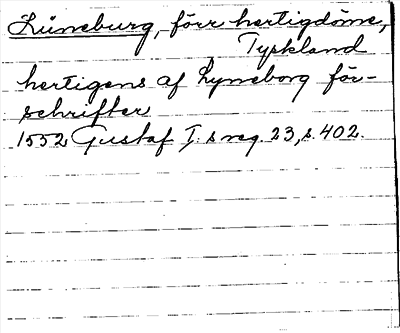 Lüneburg, förr hertigdöme,
Tyskland
hertigens af Lyneborg för-
schrifter
1552 Gustaf I:s reg. 23, s. 402.